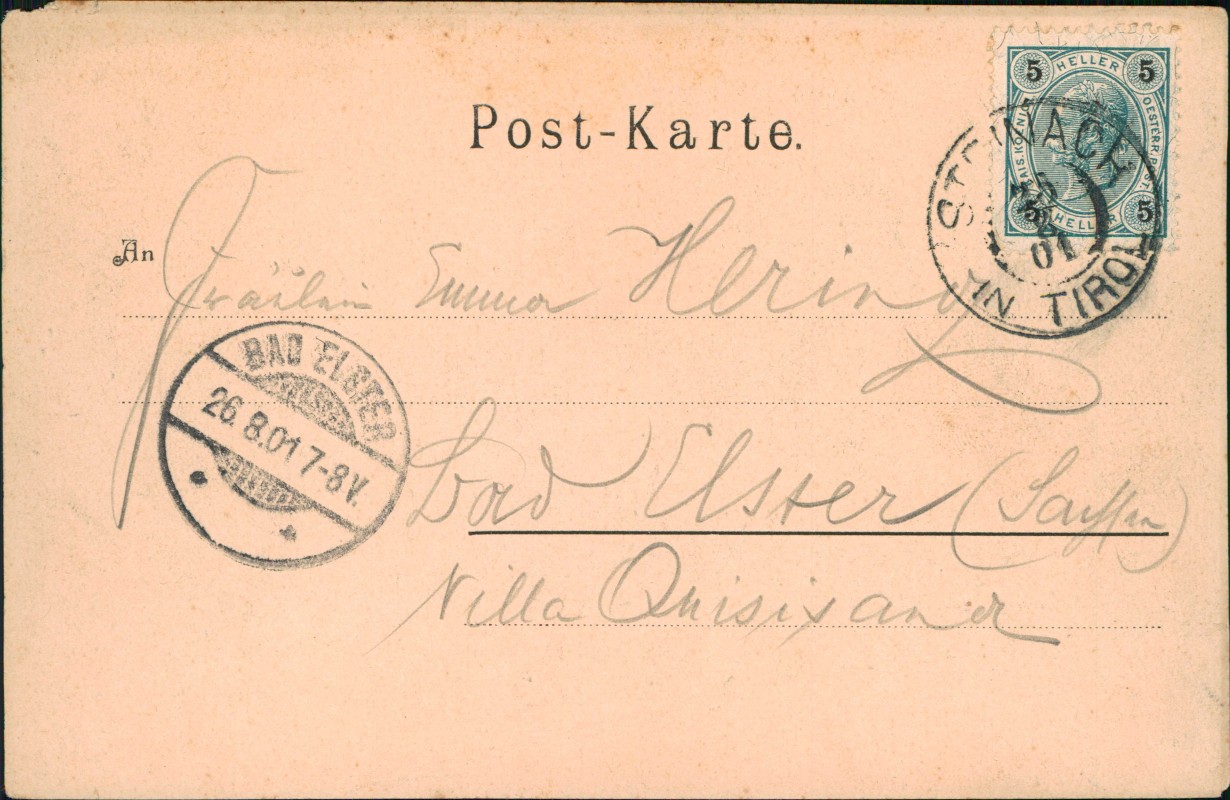 Post-Karte.
5 HELLER 5
KAIS. KÖNIGL. OESTERR. POST.
5 HELLER 5
STEINACH
01
IN TIROL
An
Fräulein Emma Hering
BAD ELSTER
26.8.01 7-8V.
Bad Elster (Sachsen)
Villa Quisisana